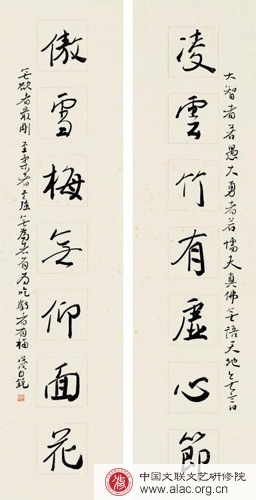 大智者若愚大勇者若懦夫真佛無語天地
凌雲竹有虛心節
傲雪梅無仰面花
無欲者最剛至柔者至有為吃虧者有福
中国文联文艺研修院
www.alac.org.cn